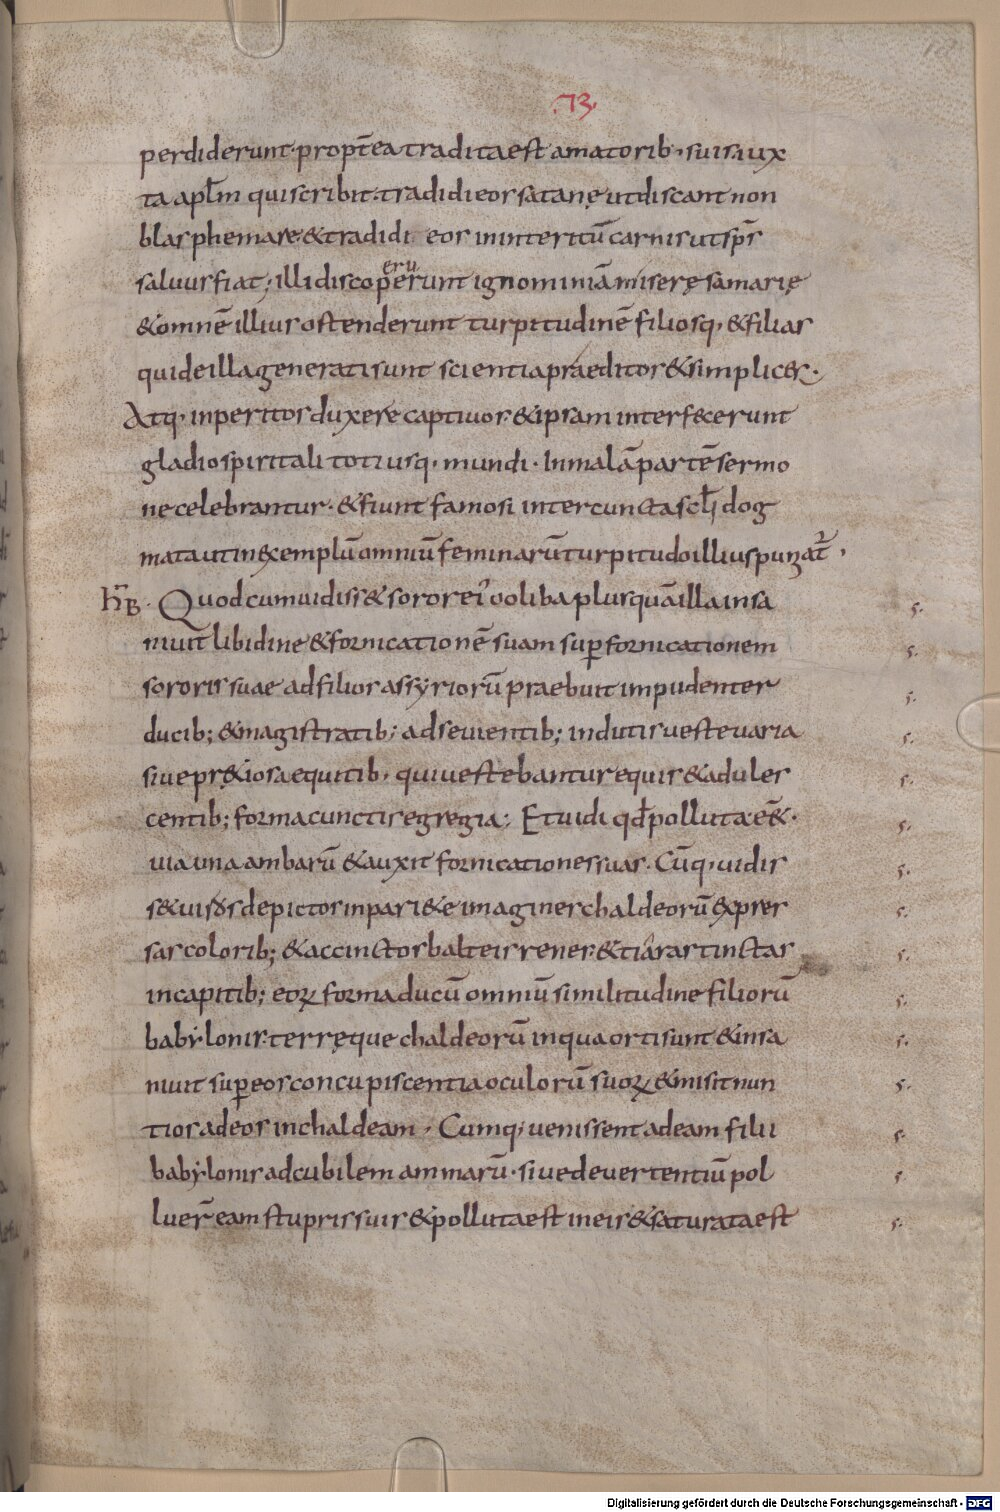 .73.
perdiderunt· propt̄ea tradita est amatorib· suis· iux
ta apłm qui scribit· tradidi eos satanę ut discant non
blasphemare & tradidi eos in interitū carnis ut sp̄s
saluus fiat; illi discoperuerunt ignominiā miserę samarię
& omnē illius ostenderunt turpitudinē filiosq· & filias
qui de illa generati sunt scientia praeditos & simplices·
Atq· inperitos duxere captiuos· & ipsam interfecerunt
gladio spiritali totiusq· mundi· In malā partē sermo
ne celebrantur· & fiunt famosi inter cuncta scłi dog
mata ut in exemplū omniū feminarū turpitudo illius purgat̄·
hB· Quod cum uidiss& soror ei ooliba plusquā illa insa
niuit libidine & fornicationē suam sup fornicationem
sororis suae ad filios assyriorū praebuit impudenter
ducib; & magistratib; ad se uientib; indutis ueste uaria
siue pr&iosa equitib· qui uestebantur equis & adules
centib; forma cunctis egregia; Et uidi qđ polluta eē&·
uia una ambarū & auxit fornicationes suas· Cūq· uidis
s& uiros depictos in pari&e imagines chaldeorū expres
sas colorib; & accinctos balteis renes· & tiaras tinctas
in capitib; eoꝝ forma ducū omniū similitudine filiorū
babylonis· terręque chaldeorū in qua orti sunt & insa
niuit sup eos concupiscentia oculorū suoꝝ & misit nun
tios ad eos in chaldeam· Cumq· uenissent ad eam filii
babylonis ad cubilem ammarū· siue deuertentiū pol
luer̄ eam stupris suis & polluta est in eis & saturata est
Digitalisierung gefördert durch die Deutsche Forschungsgemeinschaft - DFG